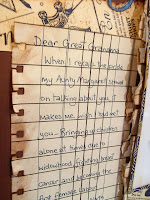 Dear Great Grandma
When I recall the pride
my Aunty Margaret showed
on talking about you, it
makes me wish I had met
you. Bringing up children
alone at times due to
widowhood, fighting breast
cancer and becoming the
first female